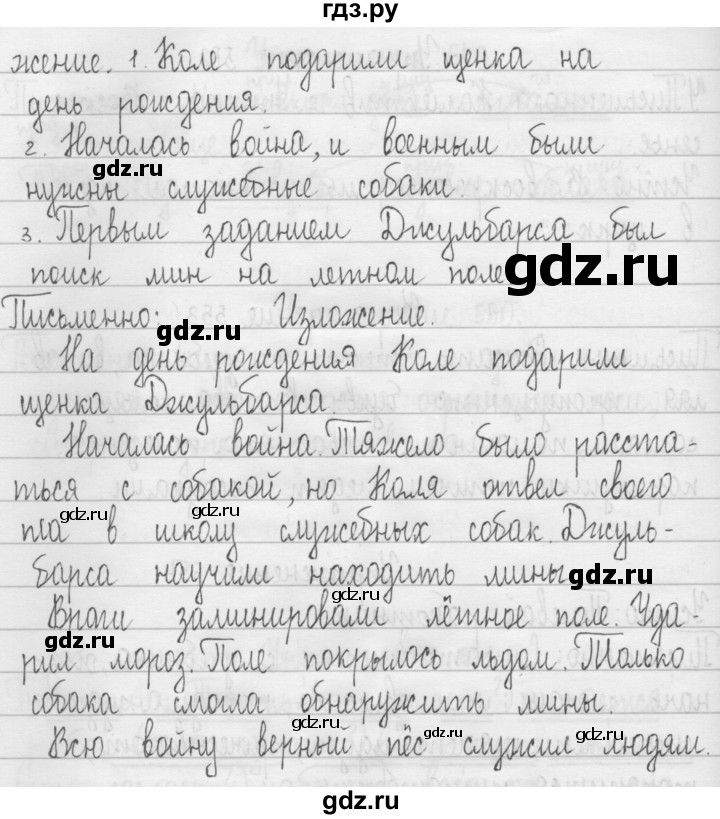 гдз.ру
жение. 1. Коле подарили щенка на
день рождения.
gdz.ru
2. Началась война, и военным были
gdz.ru
нужны служебные собаки.
3. Первым заданием Джульбарса был
поиск мин на летном поле
gdz.ru
Письменно: Изложение.
gdz.ru
На день рождения Коле подарили
щенка Джульбарса.
Началась война. Тяжело было расста-
ться с собакой, но Коля отвел своего
gdz.ru gdz.ru
пса в школу служебных собак. Джуль-
барса научили находить мины
gdz.ru
Враги заминировали лётное поле. Уда-
gdz.ru
рил мороз. Поле покрылось льдом. Только
собака смогла обнаружить мины.
gdz.ru gdz.ru gdz.ru
Всю войну верный пёс служил людям.
gdz.ru